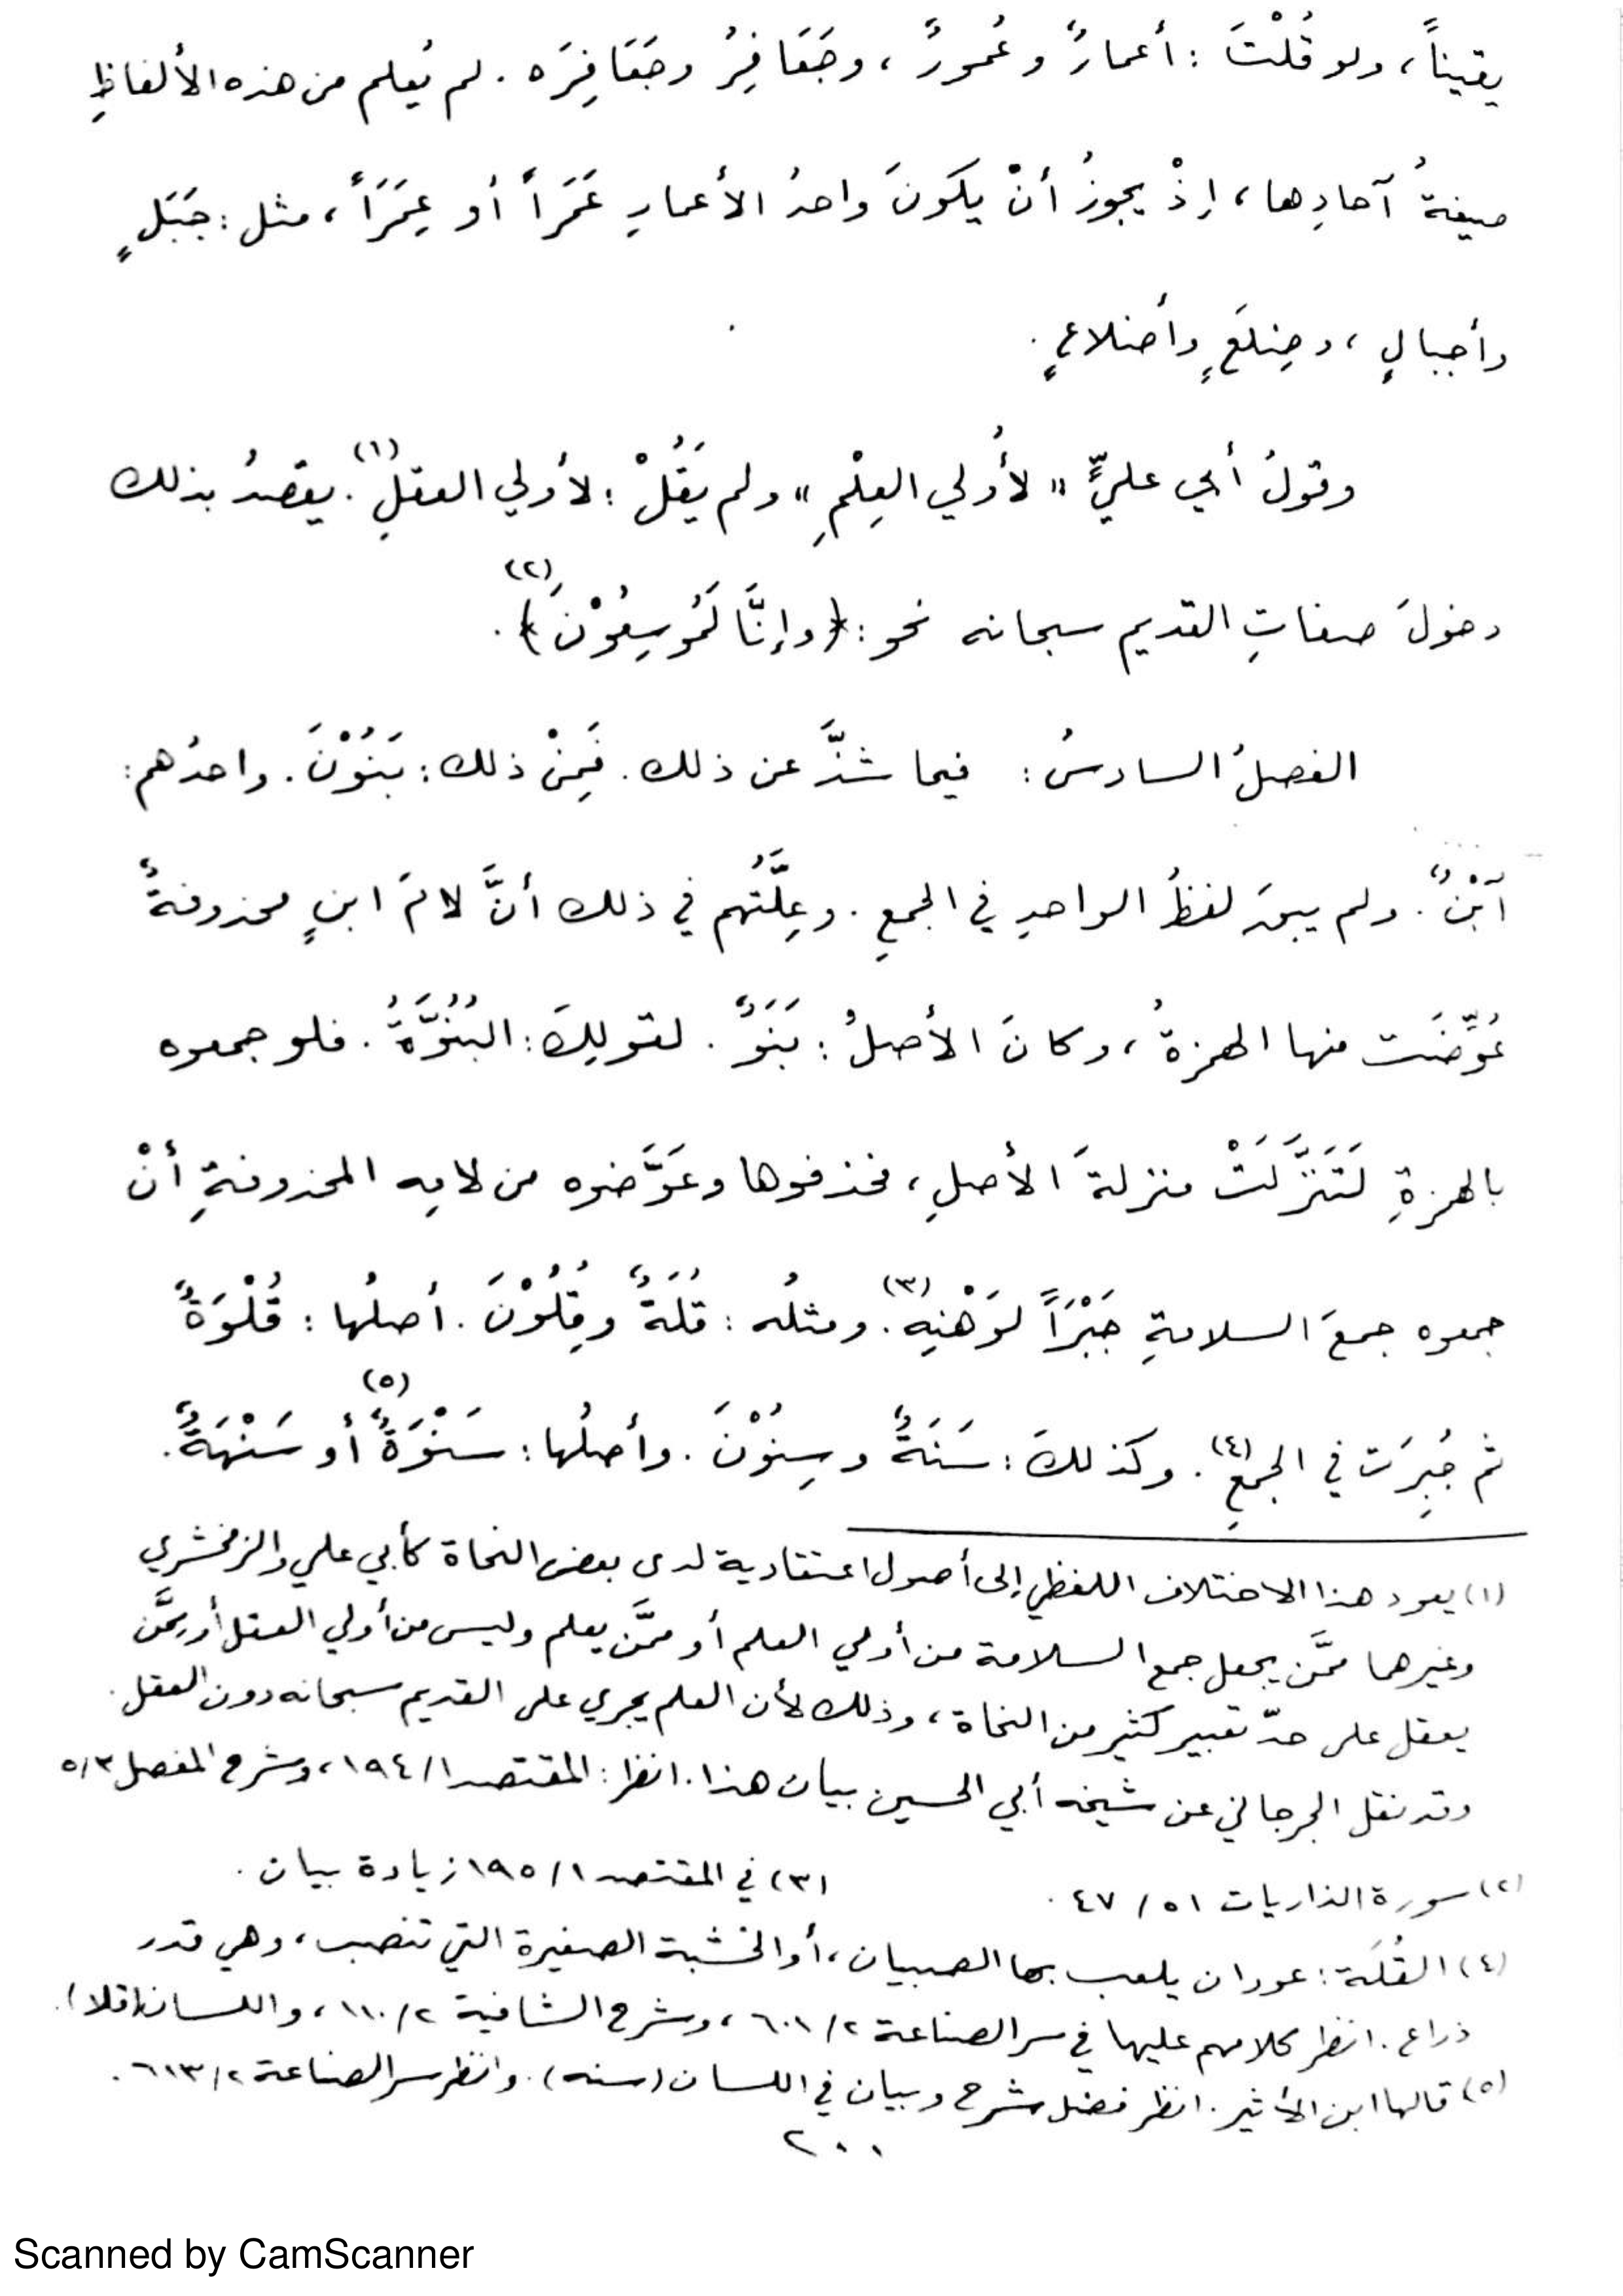 يقيناً، ولو قُلْتَ: أعمارٌ وعُمورٌ، وجَعَافِرُ وجَعَافِرَه. لم يُعلم من هذه الألفاظِ
صيغةُ آحادِها، إذْ يجوزُ أنْ يكونَ واحدُ الأعمارِ عَمَراً أو عِمَرَاً، مثل: جَبَلٍ
وأجبالٍ، وضِلَعٍ وأضلاعٍ.
وقولُ أبي عليٍّ «لأُولي العِلْمِ» ولم يَقُلْ: لأولي العقلِ(١). يقصدُ بذلك
دخولَ صفاتِ القديم سبحانه نحو: ﴿وإنَّا لَمُوسِعُوْنَ﴾(٢).
الفصلُ السادسُ: فيما شذَّ عن ذلك. فَمِنْ ذلك: بَنُوْنَ. واحدُهم:
آبْنٌ. ولم يبقَ لفظُ الواحدِ في الجمعِ. وعِلَّتُهم في ذلك أنَّ لامَ ابنٍ محذوفةٌ
عُوِّضَت منها الهمزةُ، وكانَ الأصلُ: بَنَوٌ. لقولِكَ: البُنُوَّةُ. فلو جمعوه
بالهمزةِ لَتَنَزَّلَتْ منزلةَ الأصلِ، فحذفوها وعَوَّضوه من لامِه المحذوفةِ أنْ
جمعوه جمعَ السلامةِ جَبْرَاً لوَهْنِهِ(٣). ومثلُه: قُلَةٌ وقِلُوْنَ. أصلُها: قُلْوَةٌ
ثم جُبِرَت في الجمعِ(٤). وكذلكَ: سَنَةٌ وسِنُوْنَ. وأصلُها: سَنْوَةٌ(٥) أو سَنْهَةٌ.
(١) يعود هذا الاختلاف اللفظي إلى أصول اعتقادية لدى بعض النحاة كأبي علي والزمخشري
وغيرهما ممَّن يجعل جمع السلامة من أولي العلم أو ممَّن يعلم وليس من أولي العقل أو ممَّن
يعقل على حدّ تعبير كثير من النحاة، وذلك لأن العلم يجري على القديم سبحانه دون العقل.
وقد نقل الجرجاني عن شيخه أبي الحسين بيان هذا. انظر: المقتصد ١/ ١٩٤، وشرح المفصل ٣/ ٥
(٢) سورة الذاريات ٥١/ ٤٧. (٣) في المقتصد ١/ ١٩٥ زيادة بيان.
(٤) القُلَة: عودان يلعب بهما الصبيان، أو الخشبة الصغيرة التي تنصب، وهي قدر
ذراع. انظر كلامهم عليها في سر الصناعة ٢/ ٦٠١، وشرح الشافية ٢/ ١١٠، واللسان (قلا).
(٥) قالها ابن الأثير. انظر فضل شرح وبيان في اللسان (سنه). وانظر سر الصناعة ٢/ ٦١٣.
٢٠٠
Scanned by CamScanner